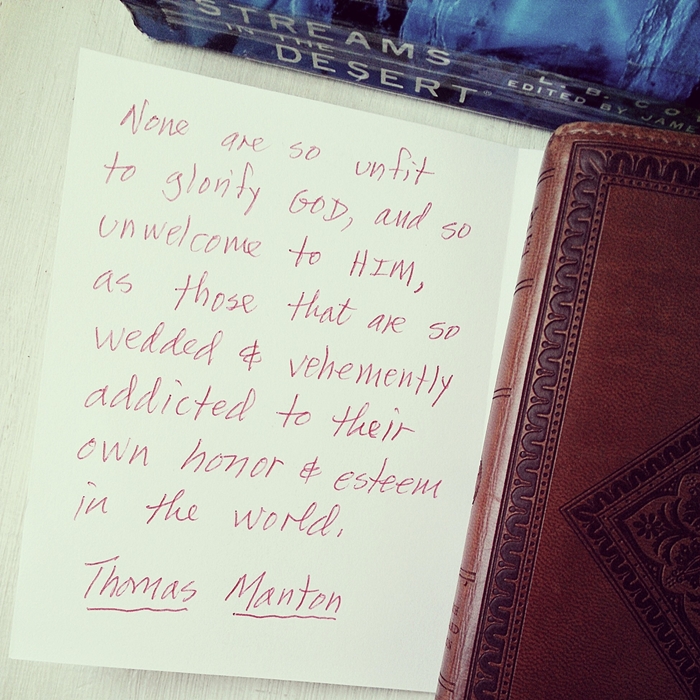 STREAMS
IN THE
DESERT
EDITED BY
None are so unfit
to glorify GOD, and so
unwelcome to HIM,
as those that are so
wedded & vehemently
addicted to their
own honor & esteem
in the world.
Thomas Manton